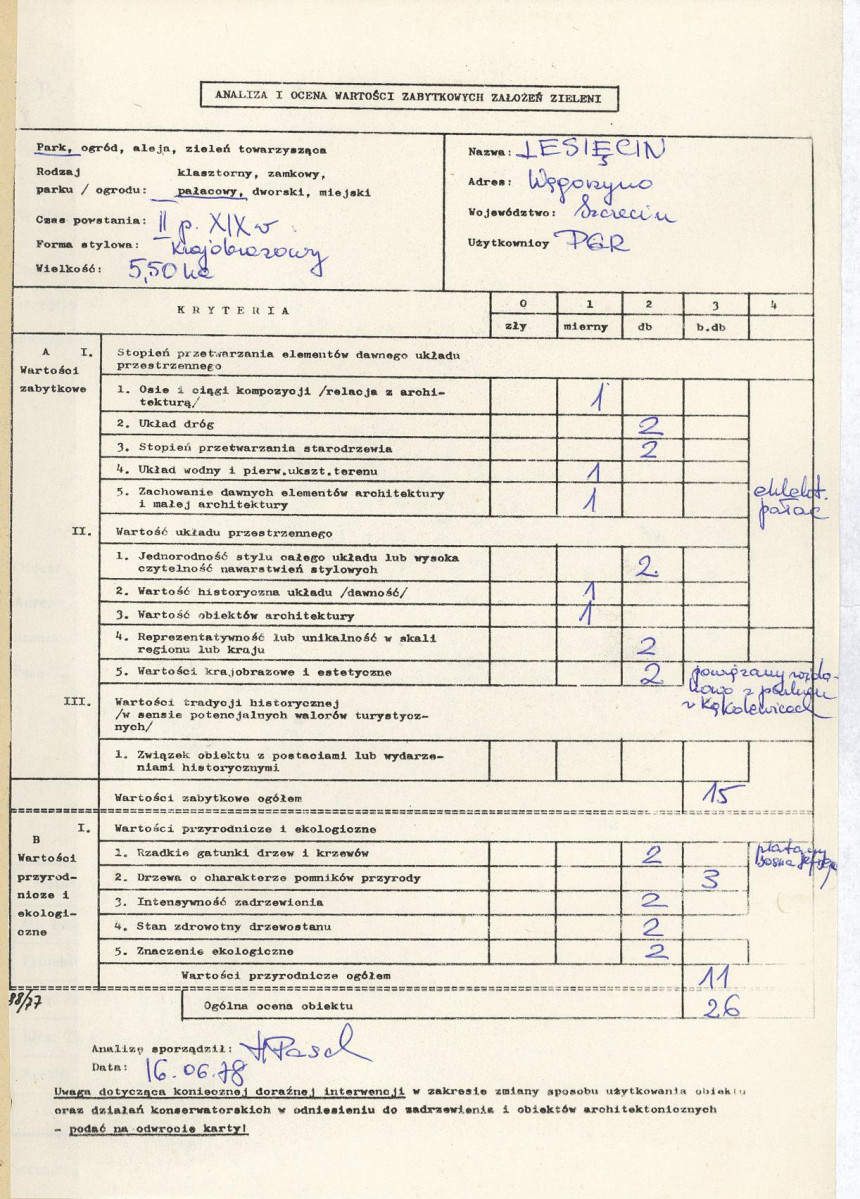 ANALIZA I OCENA WARTOŚCI ZABYTKOWYCH ZAŁOŻEŃ ZIELENI
Park, ogród, aleja, zieleń towarzysząca
Rodzaj klasztorny, zamkowy,
parku / ogrodu: pałacowy, dworski, miejski
Czas powstania: II p. XIX w
Forma stylowa: Krajobrazowy
Wielkość: 5,50 ha
Nazwa: LESIĘCIN
Adres: Węgorzyno
Województwo: Szczecin
Użytkownicy PGR
KRYTERIA 0 1 2 3 4
zły mierny db b.db
A I. Stopień przetwarzania elementów dawnego układu
Wartości przestrzennego
zabytkowe
1. Osie i ciągi kompozycji /relacja z archi-
tekturą/ 1
2. Układ dróg 2
3. Stopień przetwarzania starodrzewia 2
4. Układ wodny i pierw.ukszt.terenu 1
5. Zachowanie dawnych elementów architektury
i małej architektury 1
eklekt.
pałac
II. Wartość układu przestrzennego
1. Jednorodność stylu całego układu lub wysoka
czytelność nawarstwień stylowych 2.
2. Wartość historyczna układu /dawność/ 1
3. Wartość obiektów architektury 1
4. Reprezentatywność lub unikalność w skali
regionu lub kraju 2
5. Wartości krajobrazowe i estetyczne 2
powiązany wido-
kowo z parkiem
w Kąkolewicach
III. Wartości tradycji historycznej
/w sensie potencjalnych walorów turystycz-
nych/
1. Związek obiektu z postaciami lub wydarze-
niami historycznymi
Wartości zabytkowe ogółem 15
B I. Wartości przyrodnicze i ekologiczne
Wartości
przyrod-
nicze i
ekologi-
czne
1. Rzadkie gatunki drzew i krzewów 2
platany
sosna
2. Drzewa o charakterze pomników przyrody 3
3. Intensywność zadrzewienia 2
4. Stan zdrowotny drzewostanu 2
5. Znaczenie ekologiczne 2
Wartości przyrodnicze ogółem 11
98/77 Ogólna ocena obiektu 26
Analizę sporządził: HRasch
Data: 16.06.78
Uwaga dotycząca koniecznej doraźnej interwencji w zakresie zmiany sposobu użytkowania obiektu
oraz działań konserwatorskich w odniesieniu do zadrzewienia i obiektów architektonicznych
- podać na odwrocie karty!